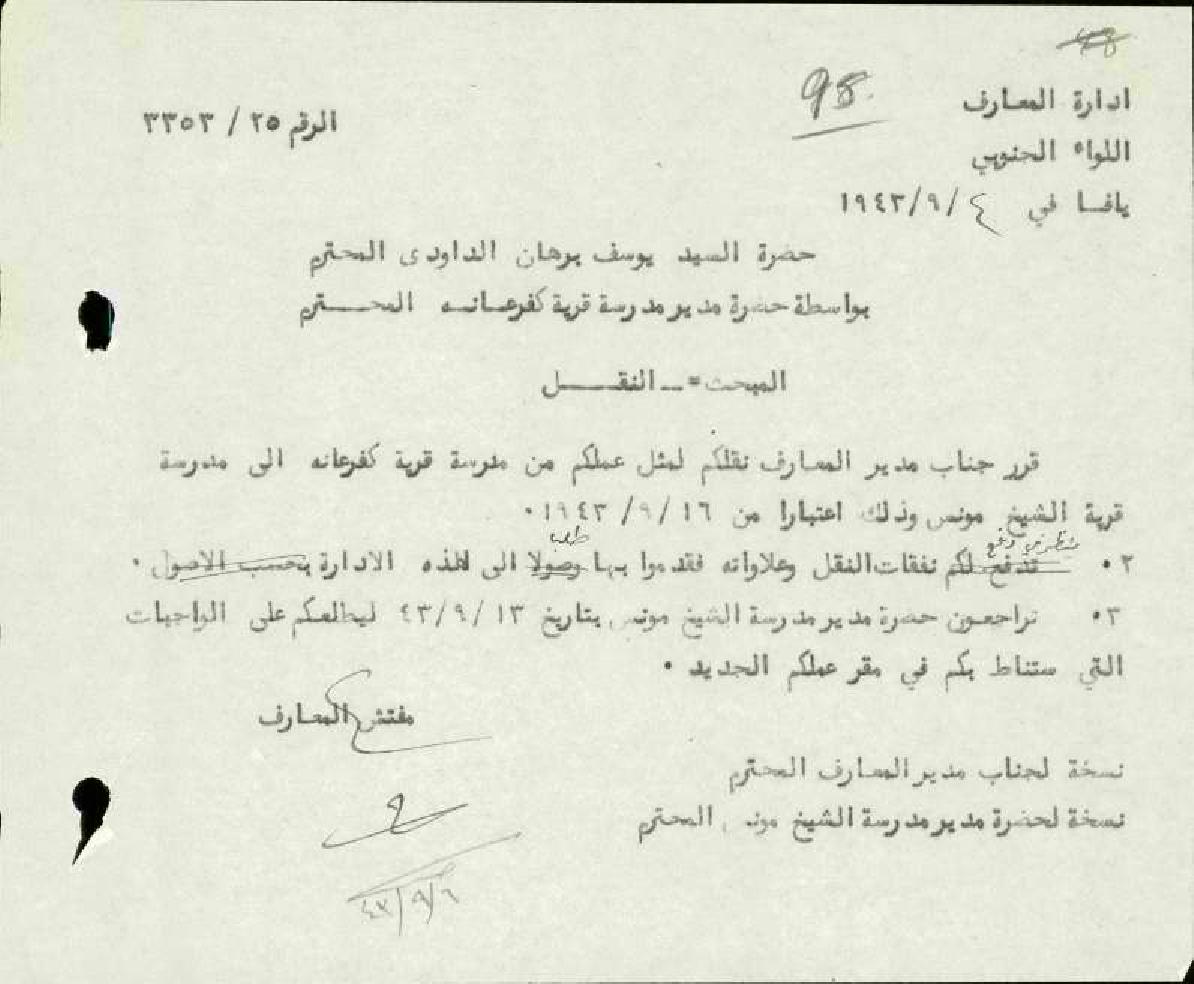 98
ادارة المعارف
الرقم ٢٥ / ٣٣٥٣
اللواء الجنوبي
يافا في ٤ /٩/١٩٤٣
حضرة السيد يوسف برهان الداودى المحترم
بواسطة حضرة مدير مدرسة قرية كفرعانه المحترم
المبحث =ـ النقل
قرر جناب مدير المعارف نقلكم لمثل عملكم من مدرسة قرية كفرعانه الى مدرسة
قرية الشيخ مونس وذلك اعتبارا من ١٦ /٩ /١٩٤٣ ٠
دفع طلب
٢ ٠ تدفع لكم نفقات النقل وعلاواته فقدموا بها وصولا الى هذه الادارة بحسب الاصول ٠
٣ ٠ تراجعون حضرة مدير مدرسة الشيخ مونس بتاريخ ١٣ /٩/ ٤٣ ليطلعكم على الواجبات
التي ستناط بكم في مقر عملكم الجديد ٠
مفتش المعارف
نسخة لجناب مدير المعارف المحترم
نسخة لحضرة مدير مدرسة الشيخ مونس المحترم
٤٣/٩/٦